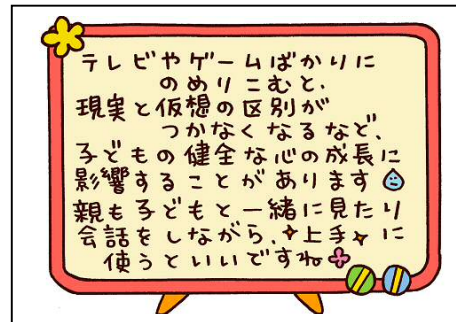 テレビやゲームばかりに
のめりこむと、
現実と仮想の区別が
つかなくなるなど、
子どもの健全な心の成長に
影響することがあります
親も子どもと一緒に見たり
会話をしながら、上手に
使うといいですね